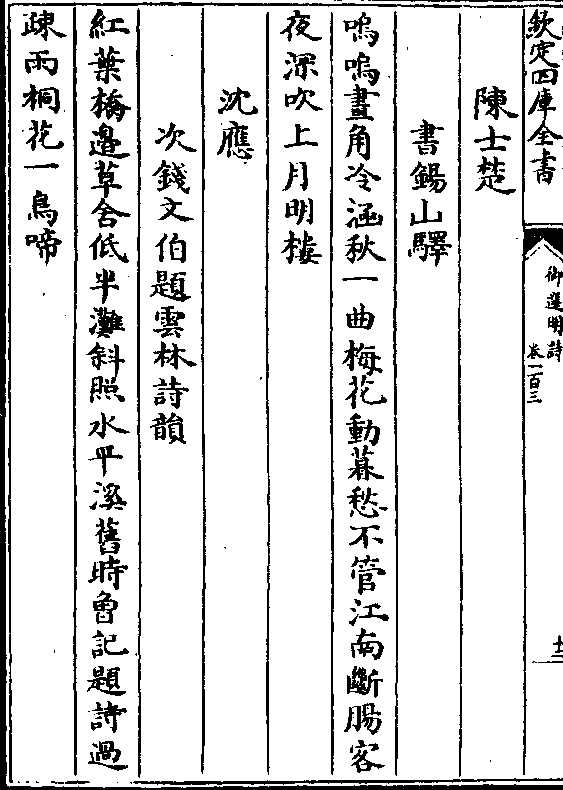 欽定四庫全書
御選明詩
卷一百三
十二
陳士楚
書錫山驛
嗚嗚畫角冷涵秋一曲梅花動暮愁不管江南斷腸客
夜深吹上月明樓
沈應
次錢文伯題雲林詩韻
紅葉橋邉草舍低半灘斜照水平溪舊時曾記題詩過
疎雨桐花一鳥啼